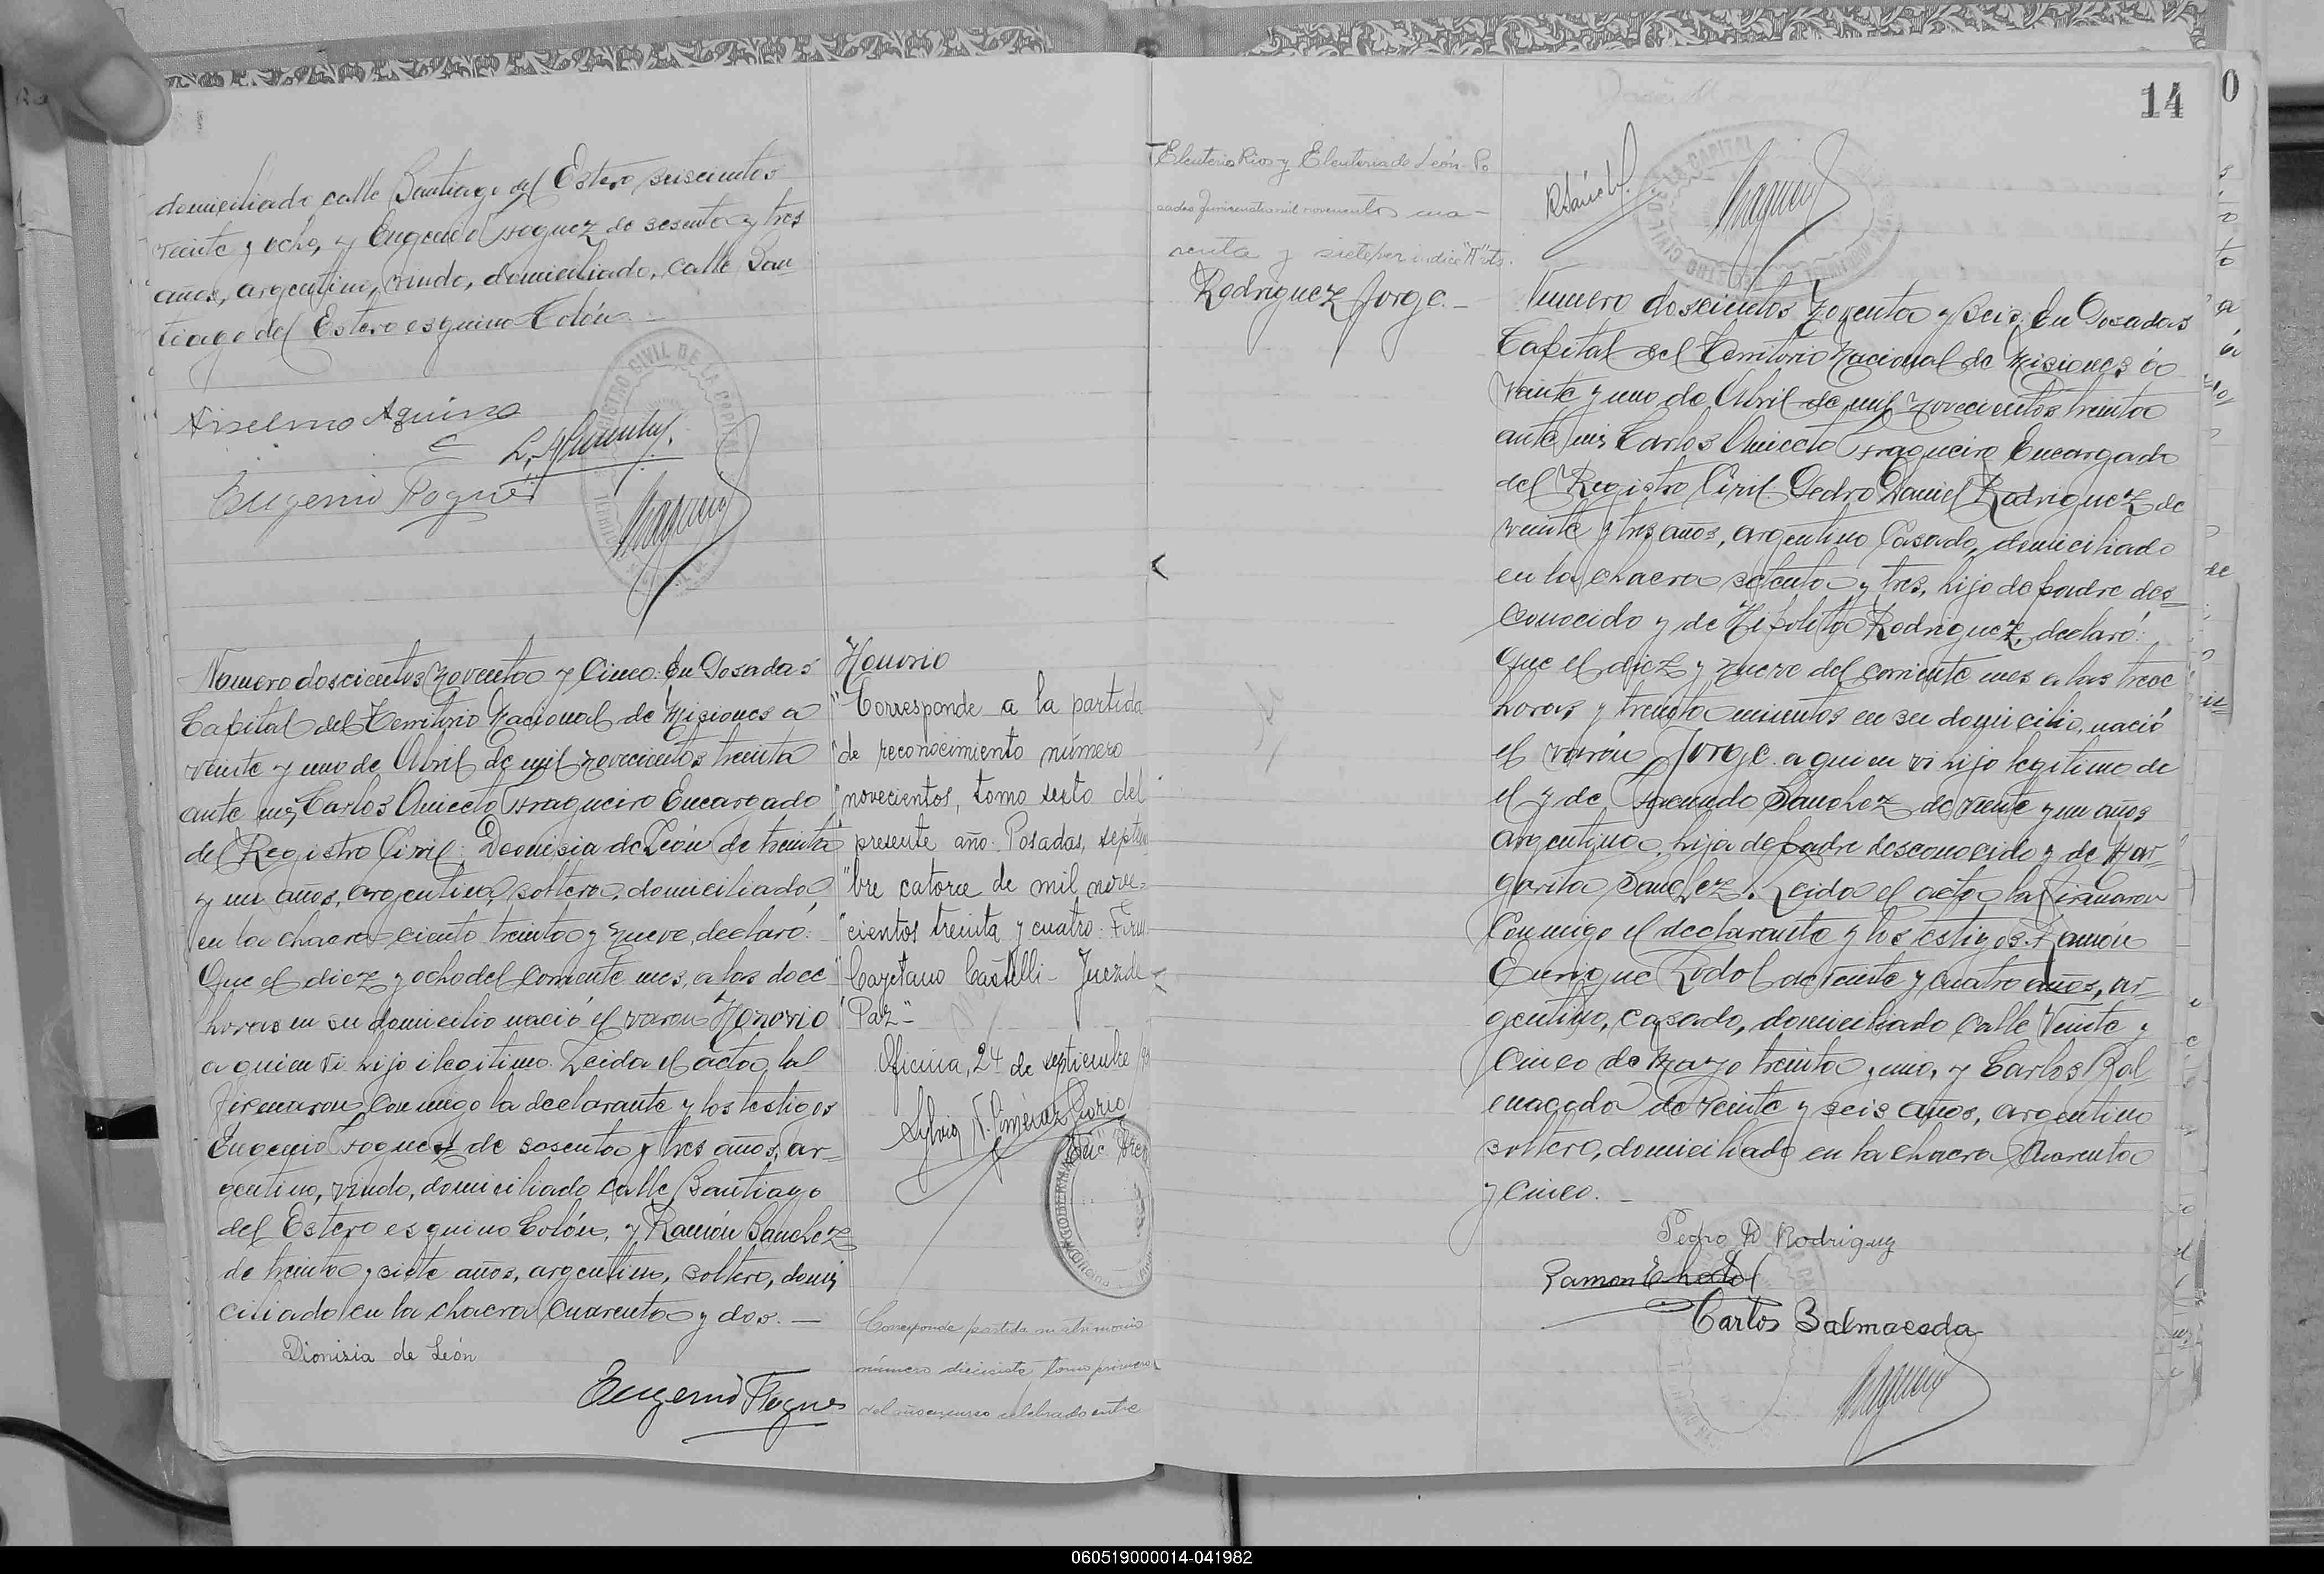 domiciliado calle Santiago del Estero seiscientos
veinte y ocho, y Eugenio de sesenta y tres
años, argentino, viudo, domiciliado, calle San
tiago del Estero esquina Colón.
Anselmo Aquino
Eugenio
Numero doscientos noventa y Cinco: En Posadas
Capital del Territorio Nacional de Misiones a
veinte y uno de Abril de mil novecientos treinta
ante mi, Carlos Aniceto Fragueiro Encargado
del Registro Civil: Deonisia de León de treinta
y un años, argentina, soltera, domiciliada,
en la chacra ciento treinta y nueve, declaró:
Que el diez y ocho del corriente mes, a las doce
horas en su domicilio nació el varon Honorio
a quien vi hijo ilegitimo. Leida el acta, la
firmaron conmigo la declarante y los testigos
Eugenio de sesenta y tres años, ar-
gentino, viudo, domiciliado calle Santiago
del Estero esquina Colón, y Ramón Sanchez
de treinta y siete años, argentino, soltero, domi
ciliado en la chacra Cuarenta y dos. —
Dionisia de León
Eugenio
Honorio
"Corresponde a la partida
"de reconocimiento número
"novecientos, tomo sexto del
"presente año. Posadas, septiem
"bre catorce de mil nove=
"cientos treinta y cuatro. Firm
"Cayetano Castelli - Juez de
"Paz"-
Oficina, 24 de septiembre
Corresponde partida matrimonio
número diecisiete tomo primero
del año en curso celebrado entre
14
0
Eleuterio Rios y Eleuteria de León. Po
sadas mil novecientos cua-
renta y siete
Rodriguez Jorge. -
Numero doscientos noventa y Seis: En Posadas
Capital del Territorio Nacional de Misiones a
veinte y uno de Abril de mil novecientos treinta
ante mi, Carlos Aniceto Fragueiro Encargado
del Registro Civil: Pedro Daniel Rodriguez de
veinte y tres años, argentino Casado, domiciliado
en la chacra setenta y tres, hijo de padre des=
conocido y de Hipolita Rodriguez, declaró:
Que el diez y nueve del corriente mes a las trece
horas y treinta minutos en su domicilio, nació
el varón Jorge a quien vi hijo legitimo de
el y de Facunda Sanchez de veinte y un años
argentina, hija de padre desconocido y de Mar-
garita Sanchez. Leida el acta la firmaron
Conmigo el declarante y los testigos: Ramón
Enrique de veinte y cuatro años, ar-
gentino, casado, domiciliado Calle Veinte y
Cinco de Mayo treinta y uno, y Carlos Bal
maceda de veinte y seis años, argentino
soltero, domiciliado en la chacra Cuarenta
y cinco. -
Pedro D Rodriguez
Ramon E
Carlos Balmaceda
060519000014-041982